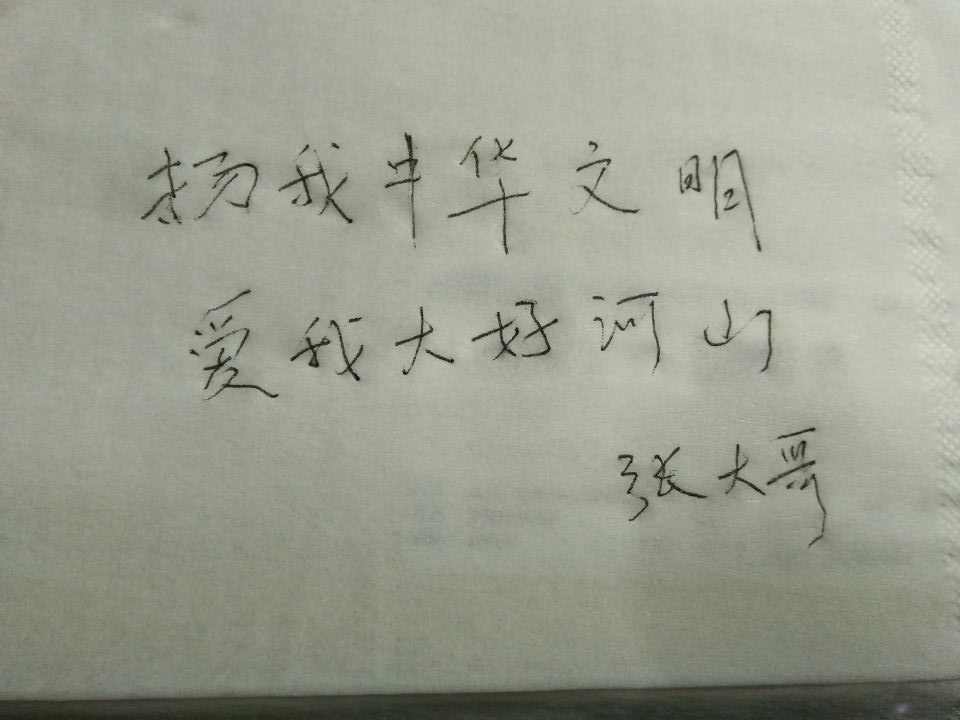 扬我中华文明
爱我大好河山
张大哥